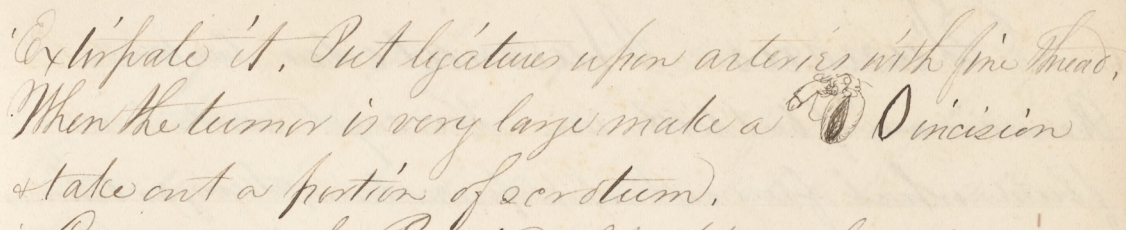 Extirpate it. Put ligatures upon arteries with fine thread.
When the tumor is very large make a 0 incision
& take out a portion of scrotum.